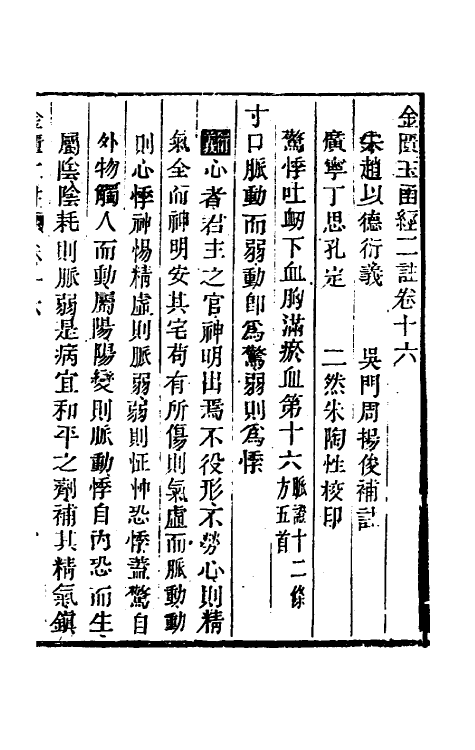 金匱玉函經二註卷十六
宋趙以德衍義 吳門周揚俊補註
廣寧丁思孔定 二然朱陶性校印
驚悸吐衂下血胸滿瘀血第十六脈證十二條方五首
寸口脈動而弱動卽為驚弱則為悸
心者君主之官神明出焉不役形不勞心則精
氣全而神明安其宅苟有所傷則氣虛而脈動動
則心悸神惕精虛則脈弱弱則怔忡恐悸蓋驚自
外物觸人而動屬陽陽變則脈動悸自內恐而生
屬陰陰耗則脈弱是病宜和平之劑補其精氣鎮